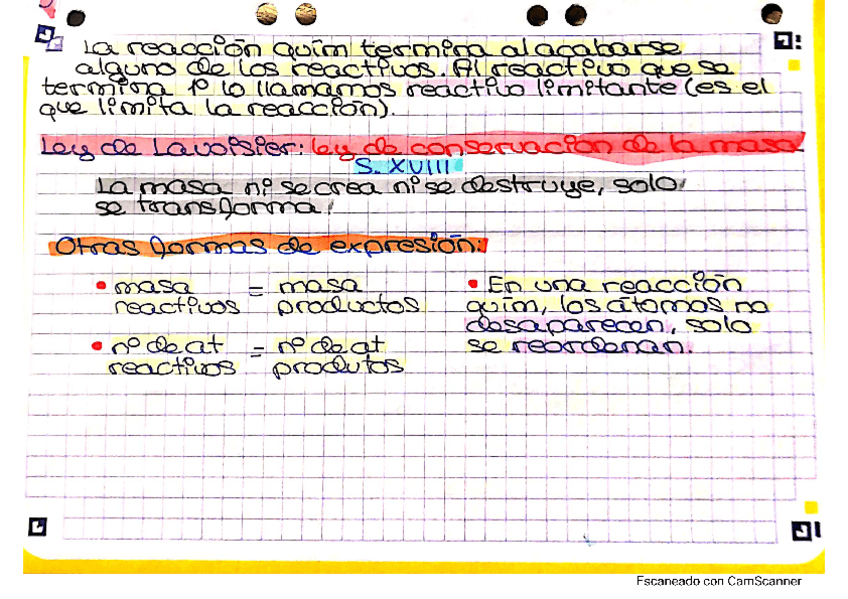 La reacción quím termina al acabarse
alguno de los reactivos. Al reactivo que se
termina 1º lo llamamos reactivo limitante (es el
que limita la reacción).
Ley de Lavoisier: ley de conservación de la masa
S. XVIII
La masa ni se crea ni se destruye, solo
se transforma.
Otras formas de expresión:
• masa = masa
reactivos productos
• nº de at = nº de at
reactivos produtos
• En una reacción
quím, los átomos no
desaparecen, solo
se reordenan.
Escaneado con CamScanner